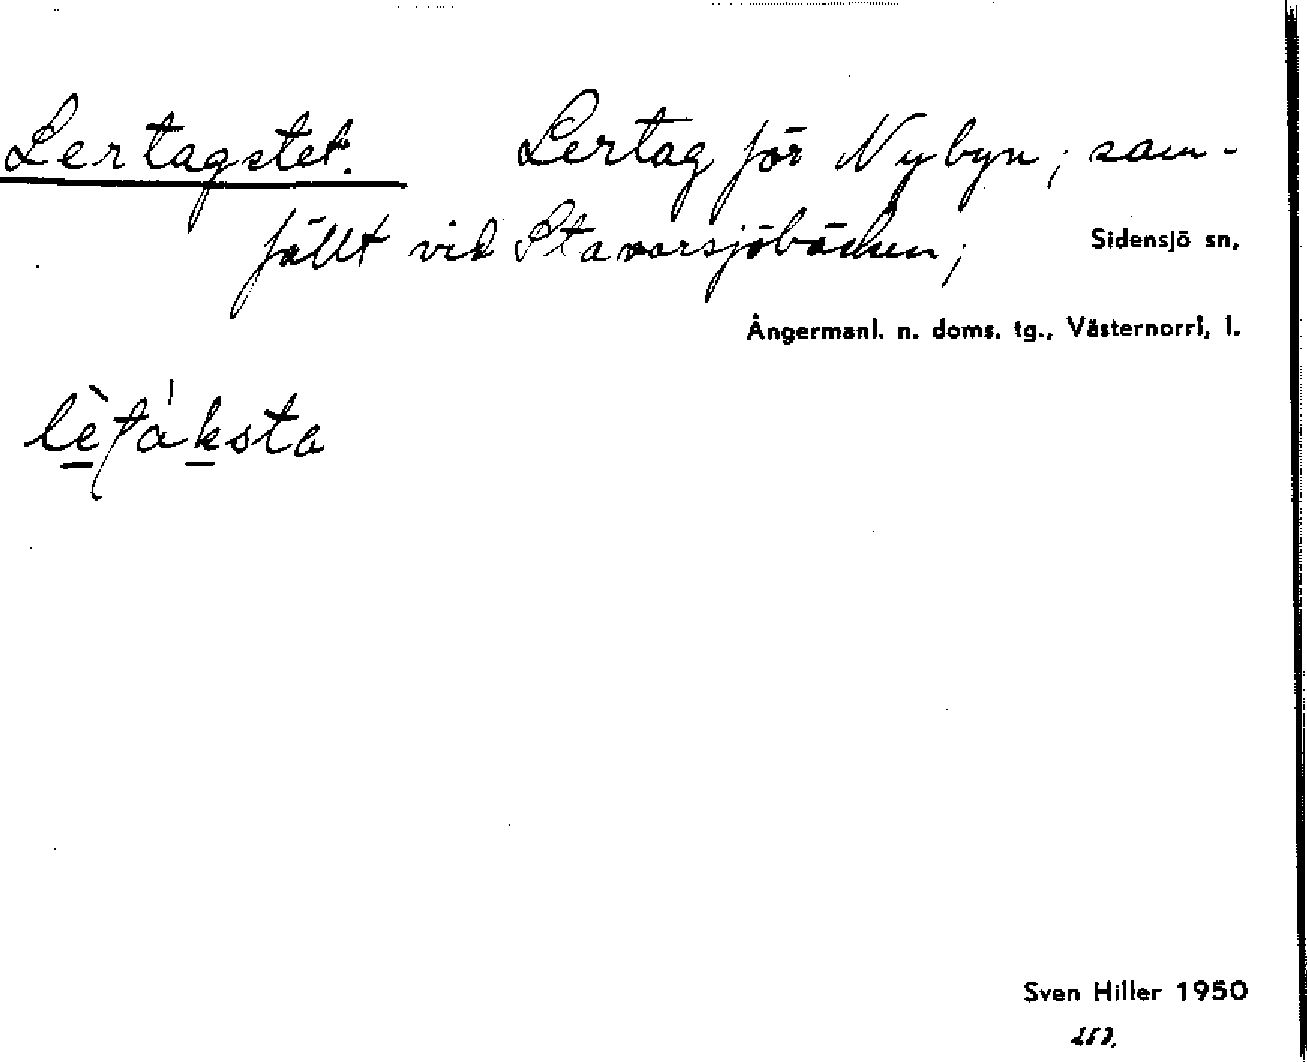 Lertagstet. Lertag för Nybyn; sam-
fällt vid Stavarsjöbäcken;
Sidensjö sn,
Ångermanl. n. doms. tg., Västernorrl. l.
lètáksta
Sven Hiller 1950